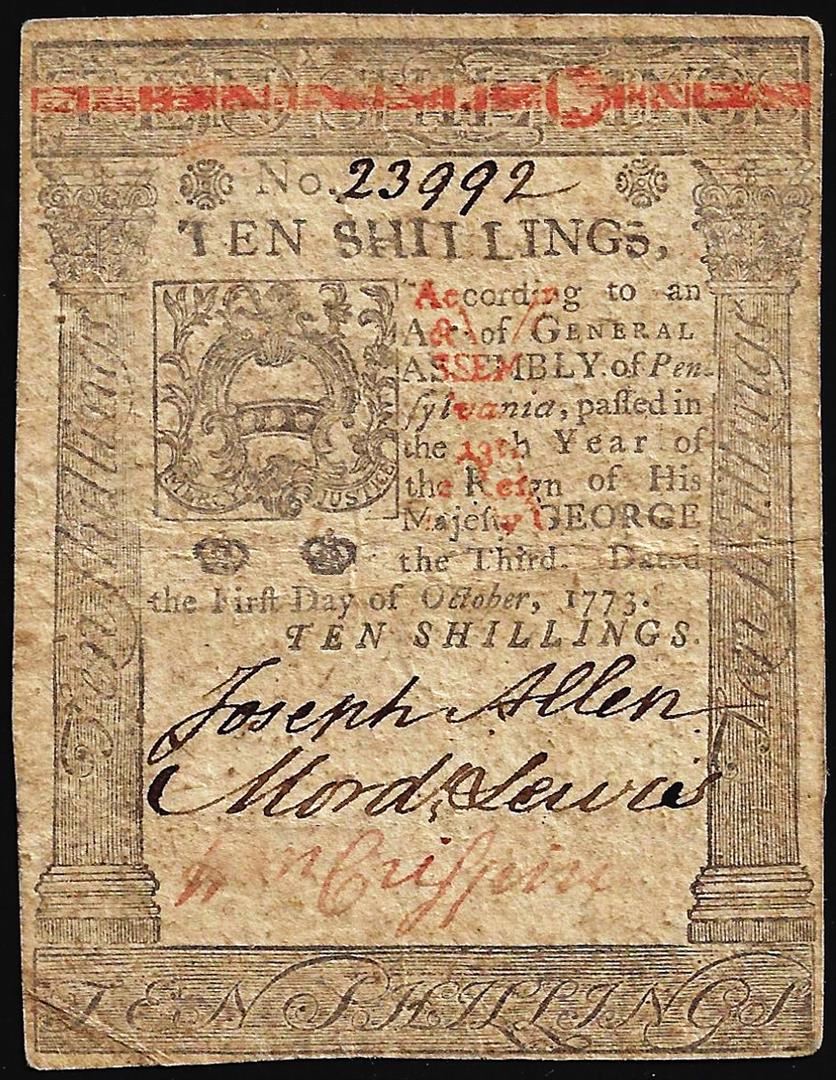 TEN SHILLINGS
No. 23992
TEN SHILLINGS,
According to an
Act of GENERAL
ASSEMBLY of Pen-
ſylvania, paſſed in
the 13th Year of
the Reign of His
Majeſty GEORGE
the Third. Dated
the Firſt Day of October, 1773.
TEN SHILLINGS.
MERCY JUSTICE
Ten Shillings
Ten Shillings
Joseph Allen
Mord. Lewis
Wm Criſpin
TEN SHILLINGS